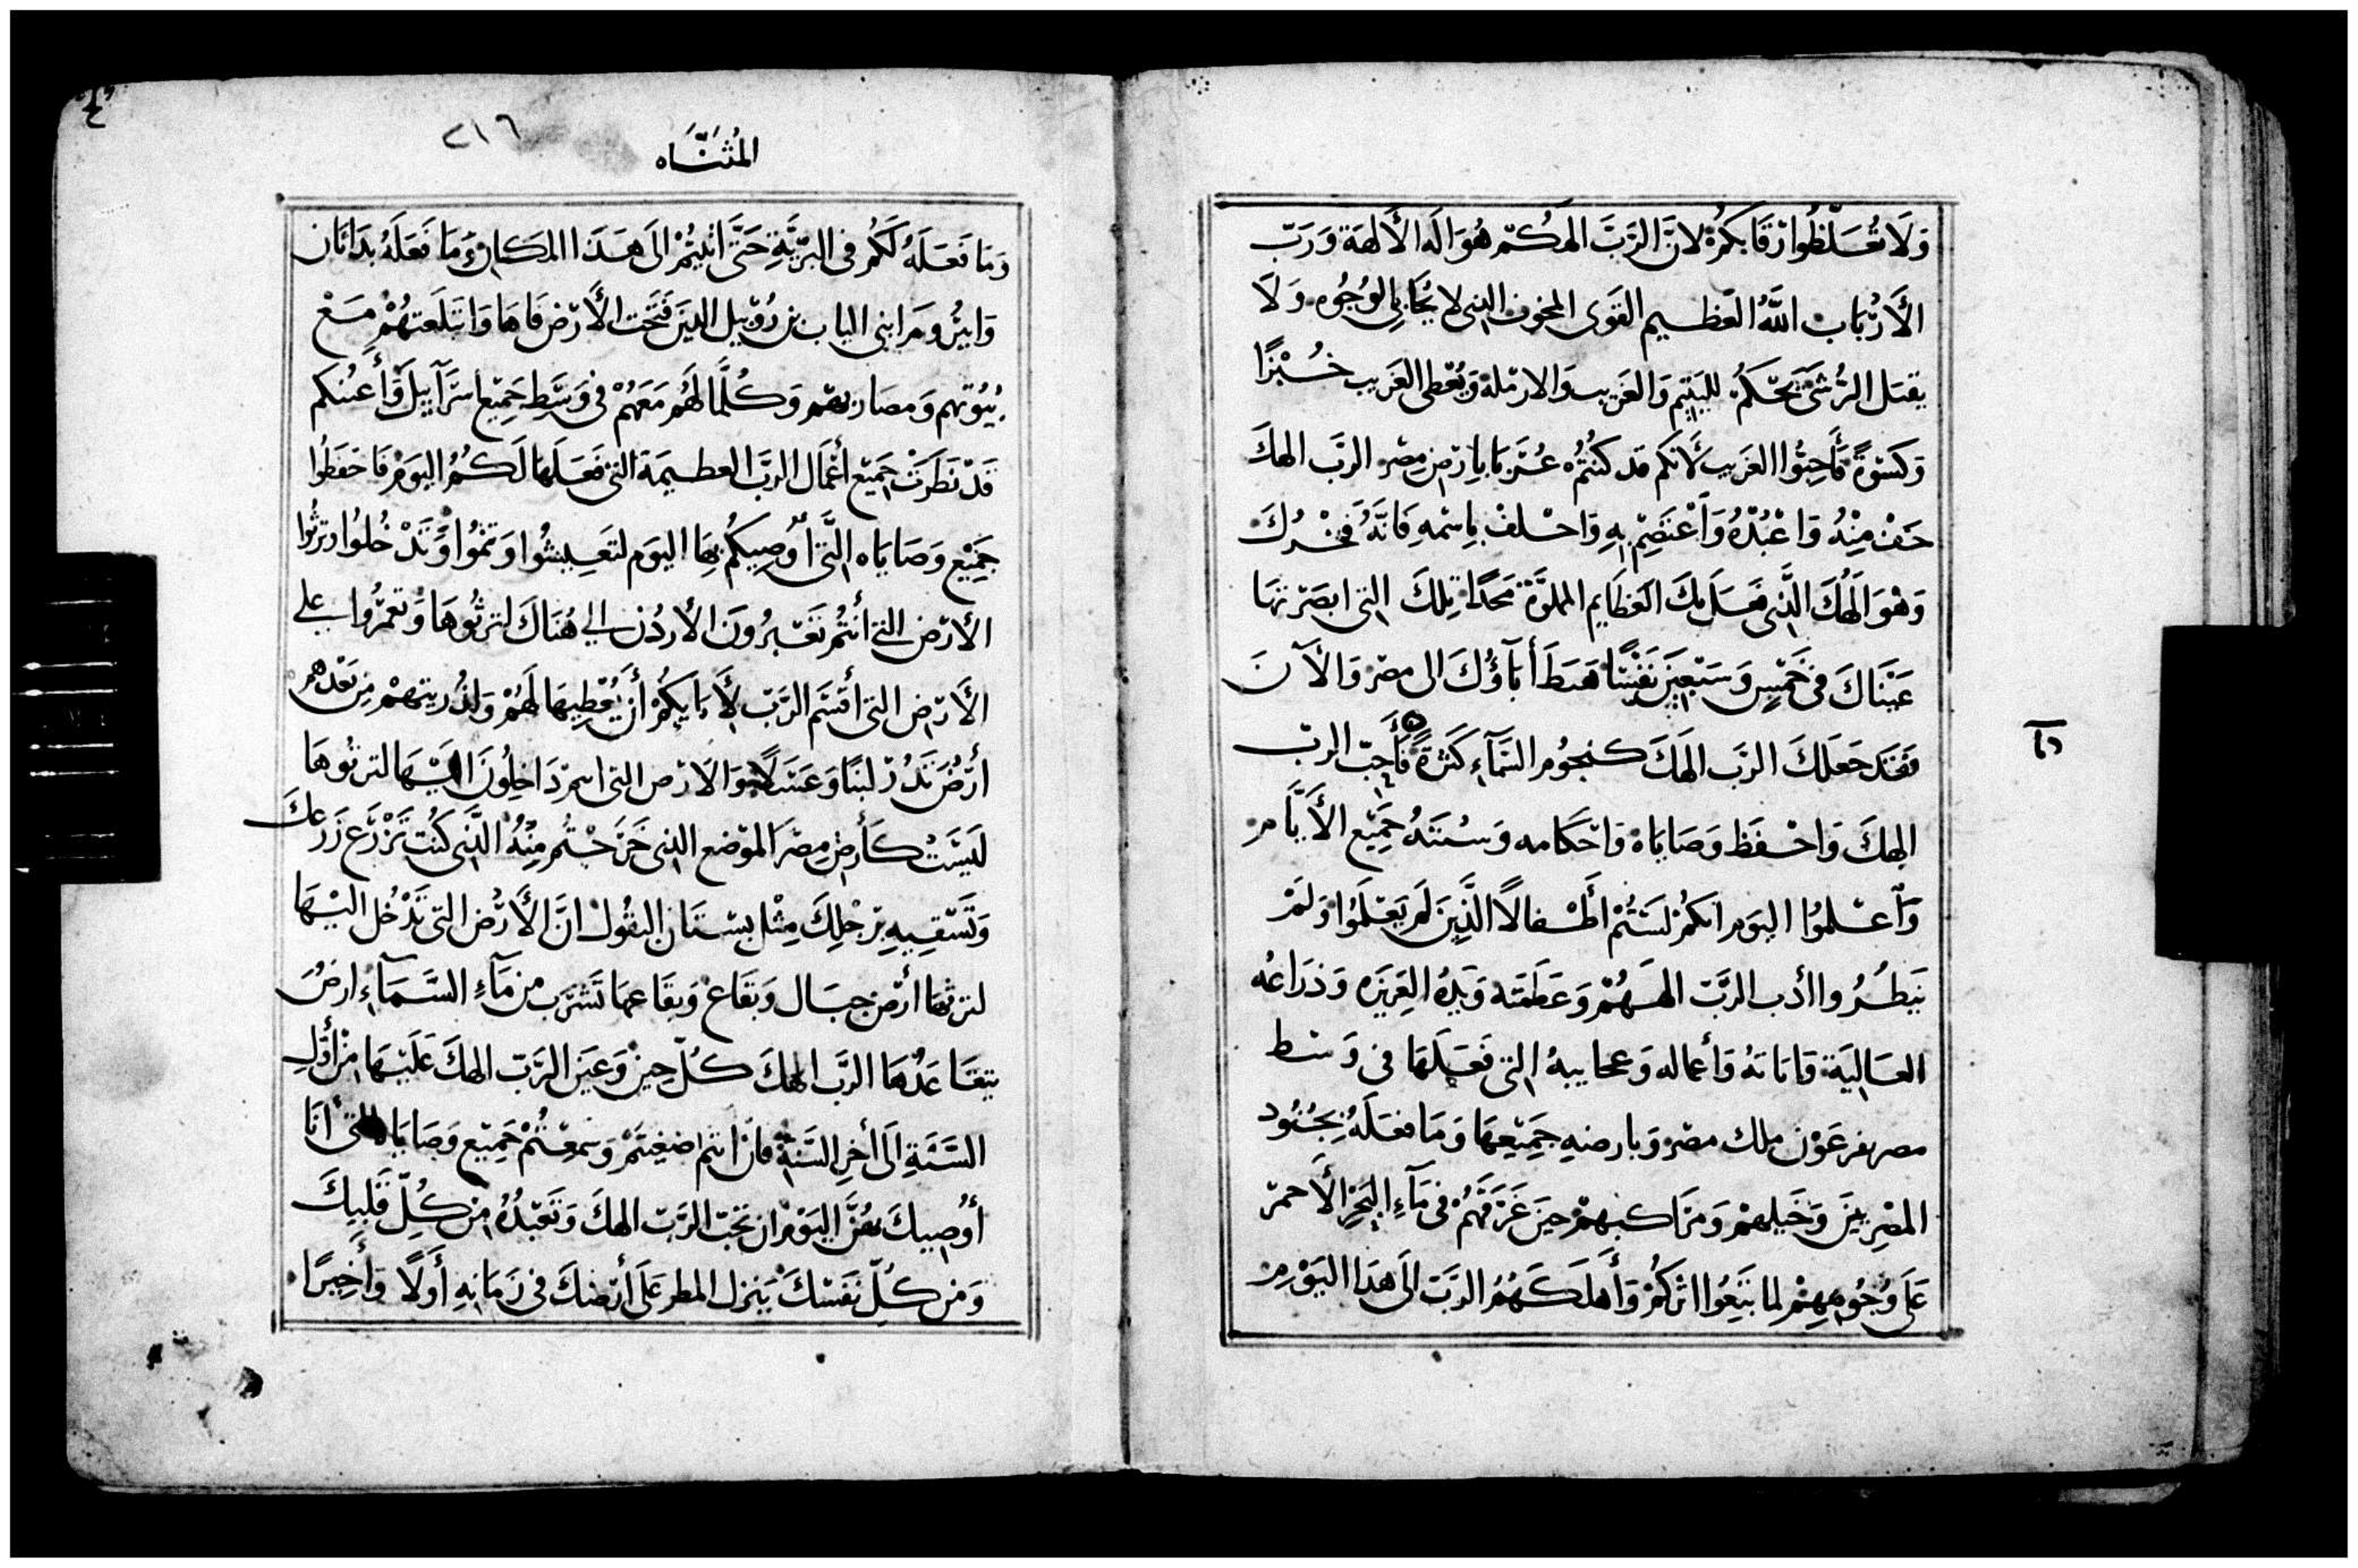 وَلَا تُغَلِّظُوا رقَابكُمْ لانَّ الرَّبَّ الهكُم هُوَ اله الألهة وَرَبّ
الأَرْبَاب اللَّه العَظيم القَوى المخوف الذى لا يُحَابى الوُجُوه وَلَا
يقبَل الرُّشَى يَحْكمُ لليَتِيم وَالغَريب والارملة وَيُعْطى الغَريب خُبْزًا
وَكسْوَةً فَأَحِبُّوا الغَريب لأَنكم قد كنتُمْ غُرَبَا بارض مِصْر الرَّب الهكَ
خَفْ مِنْهُ وَاعْبُدْهُ وَأعْتَصِمْ بِهِ وَاحْلفْ بِاسْمهِ فَانَّهُ فَخْرُكَ
وَهْوَ الَهُكَ الَّذى فَعَلَ بكَ العَظَايم المملوَّة مَجْدًا تِلكَ التى ابصَرتهَا
عَيْنَاكَ فى خَمْسٍ وَسَبْعِينَ نَفْسًا هَبَطَ أبَآؤُكَ الى مصْر وَالأَنَ
فَقَد جَعَلكَ الرَّب الَهكَ كنجُوم السَّمَآءِ كَثْرَةً فَأَحِبّ الرب
الهكَ وَاحْفَظ وَصَايَاهُ وَاحْكَامه وَسُنَنَهُ جَمِيْع الأيَّام
وَأعْلمُوا اليَوم انكمْ لَسْتُمْ أطْفالاً الَّذِينَ لَم يَعْلَمُوا وَلَمْ
يَنظُرُوا أدَب الرَّبّ الهَهُمْ وَعَظَمَته وَيَدَهُ العَزِيزَه وَذرَاعه
العَاليَة وَاياتهُ وَأعماله وَعجايبهُ التى فَعَلَهَا فى وَسْط
مصر بفرعَوْن ملك مصْر وَبارضهِ جَمِيْعِهَا وَمَا فعَلَهُ بِجُنُود
المصْرِيينَ وَخَيلهمْ وَمَرَاكبهمْ حِينَ غَرَّقهُمْ فى مَآءِ البَحْرِ الأَحمر
عَلَى وُجُوههِمْ لما تبَعُوا اثركُمْ وَأهلَكَهُمُ الرَّبّ الَى هَذا اليَوْم
دا
المُثَنَّاه
٢١٦
وَمَا فَعَلَهُ لَكُم فى البَرِّيَّةِ حَتَّى اتيتُمْ الَى هَذَا المكان وَمَا فَعَلَهُ بدَاثَان
وَابيرُوم ابنى الياب بن رُوبيل الذينَ فَتَحَت الأَرْض فَاهَا وَابتَلَعَتهُمْ مَعْ
بُيُوتهم وَمضاربهم وَكُلّمَا لَهُم مَعَهُمْ فى وَسْطِ جَمِيْع اسْرَآييلَ وَأعيُنكم
قَدْ نَظَرَتْ جَمِيْع أعْمَال الرَّبّ العظيمَة التى فَعَلهَا لَكُمُ اليَومَ فَاحْفَظُوا
جَمِيْع وَصَايَاه الَّتى أُوصِيكُم بِهَا اليَوم لتَعِيشُوا وَتنمُوا وَتَدْخُلوُا وَترثُوا
الأَرْض التى أنتُمْ تَعْبرُونَ الأردُن الى هُنَاكَ لترثُوهَا وَتعمرُوا على
الأَرْض التى أقسَم الرَّبّ لأَبَايكُمْ أنْ يُعْطِيهَا لَهُمْ وَلذُريتهمْ مِن بَعْدهم
أرْضَ تدُرُّ لبَنًا وَعَسَلًا وَالَارْض التى انتم دَاخِلُونَ اليْهَا لترثوهَا
لَيْسَتْ كَأَرض مِصْرَ الموْضع الذى خَرَجْتُم مِنْهُ الَّذى كُنْت تَزْرَع زَرعكَ
وَتَسْقِيهِ برجْلكَ مِثْل بُسْتَان البقُول انَّ الأَرْض التى تَدْخُل اليْهَا
لترثهَا أرْض جبَال وَبقَاع وَبقَاعها تَشْرَب من مَآءِ السَّمَآءِ ارضُ
يتعَاهَدُهَا الرَّب الهكَ كُلّ حِين وَعَين الرَّبّ الهكَ عَلَيْهَا مِنْ أوَّلِ
السَّنَةِ الَى أخِر السَّنَة فَان انتم اصْغيتمْ وَسَمِعْتُمْ جَمِيْع وَصَايَاه التى أنَا
أُوصِيكَ بهنَّ اليَومَ ان تحبّ الرَّبّ الهكَ وَتَعبُدهُ من كُلِّ قَلبكَ
وَمن كُلّ نَفْسكَ يَنزل المطر عَلَى أرْضكَ فى زَمَانِهِ أَوّلًا وَأخِيرًا